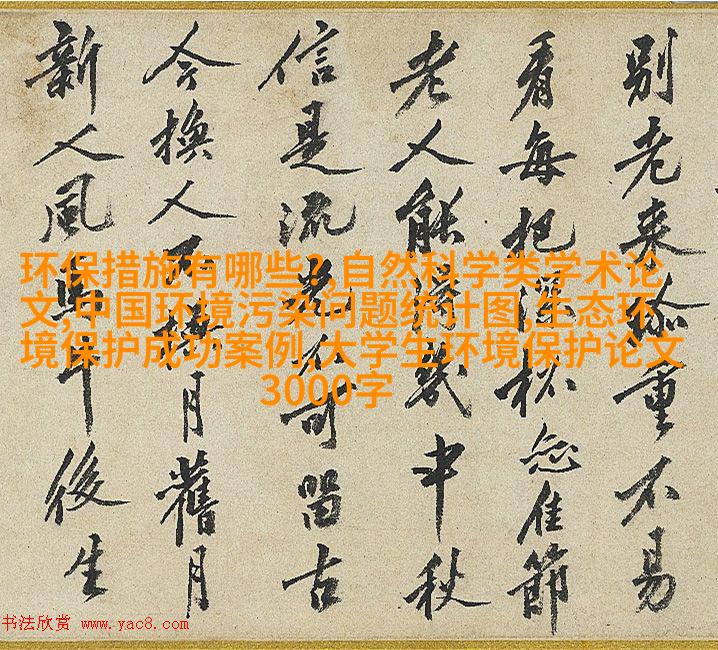 别老来珎重不易
看每把深杯佳節
老人能得幾中秋
信是流光不可留古
今換人不換月舊月
新人風馬牛後生
环保措施有哪些?,自然科学类学术论
文,中国环境污染问题统计图,生态环
境保护成功案例,大学生环境保护论文
3000字
书法欣赏 www.yac8.com